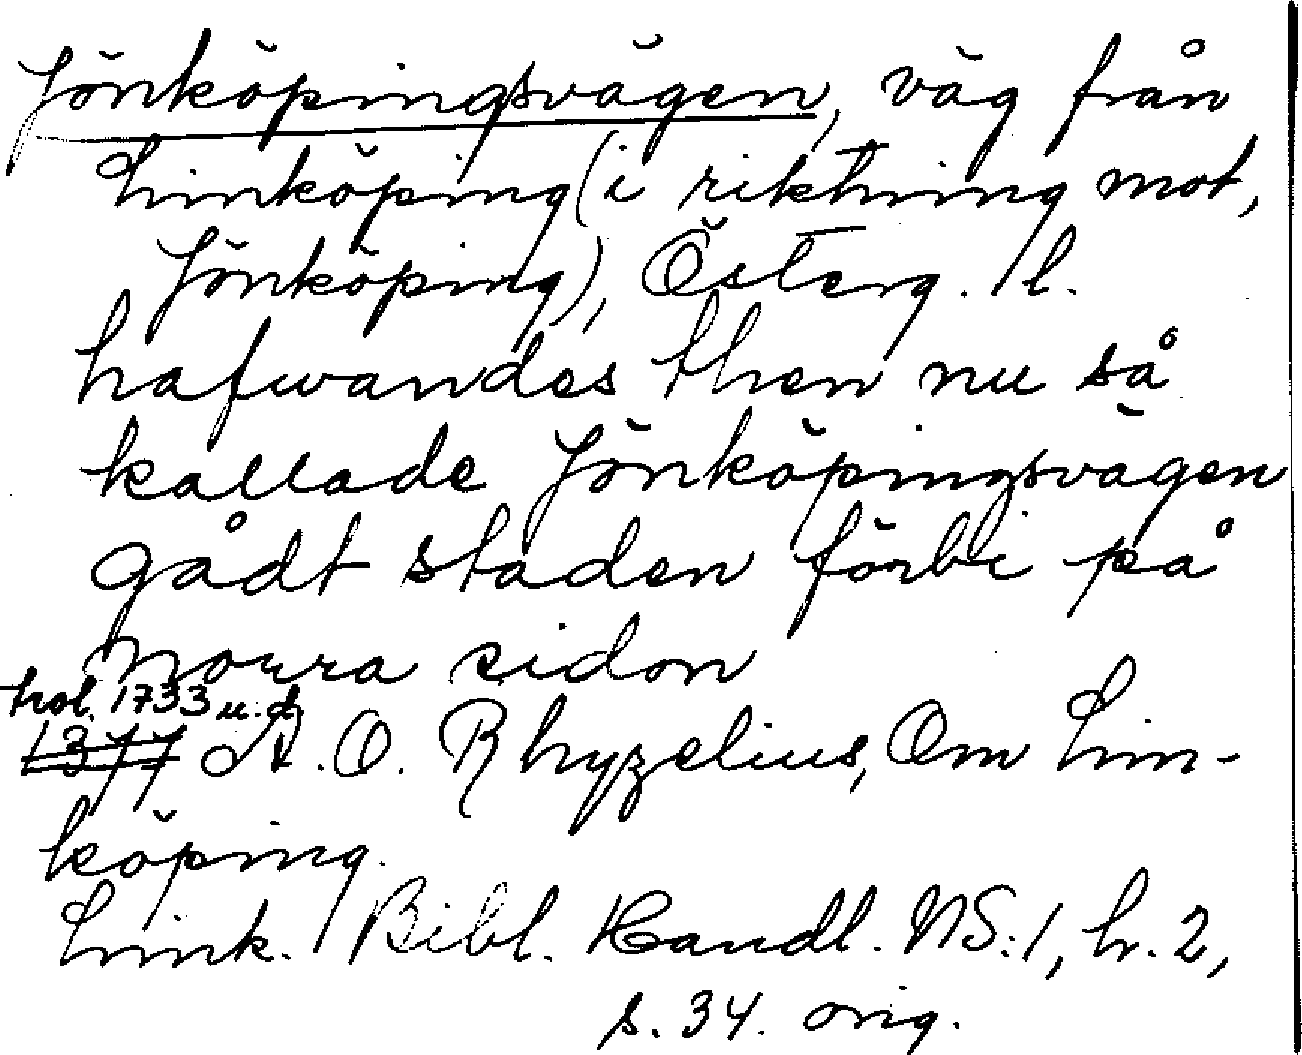 Jönköpingsvägen, väg från
Linköping (i riktning mot,
Jönköping), Österg. l.
hafwandes then nu så
kallade Jönköpingsvägen
gådt staden förbi på
norra sidon
trol. 1733 u. d.
1377 A. O. Rhyzelius, Om Lin-
köping.
Link. Bibl. Handl. NS:1, h. 2,
s. 34. orig.